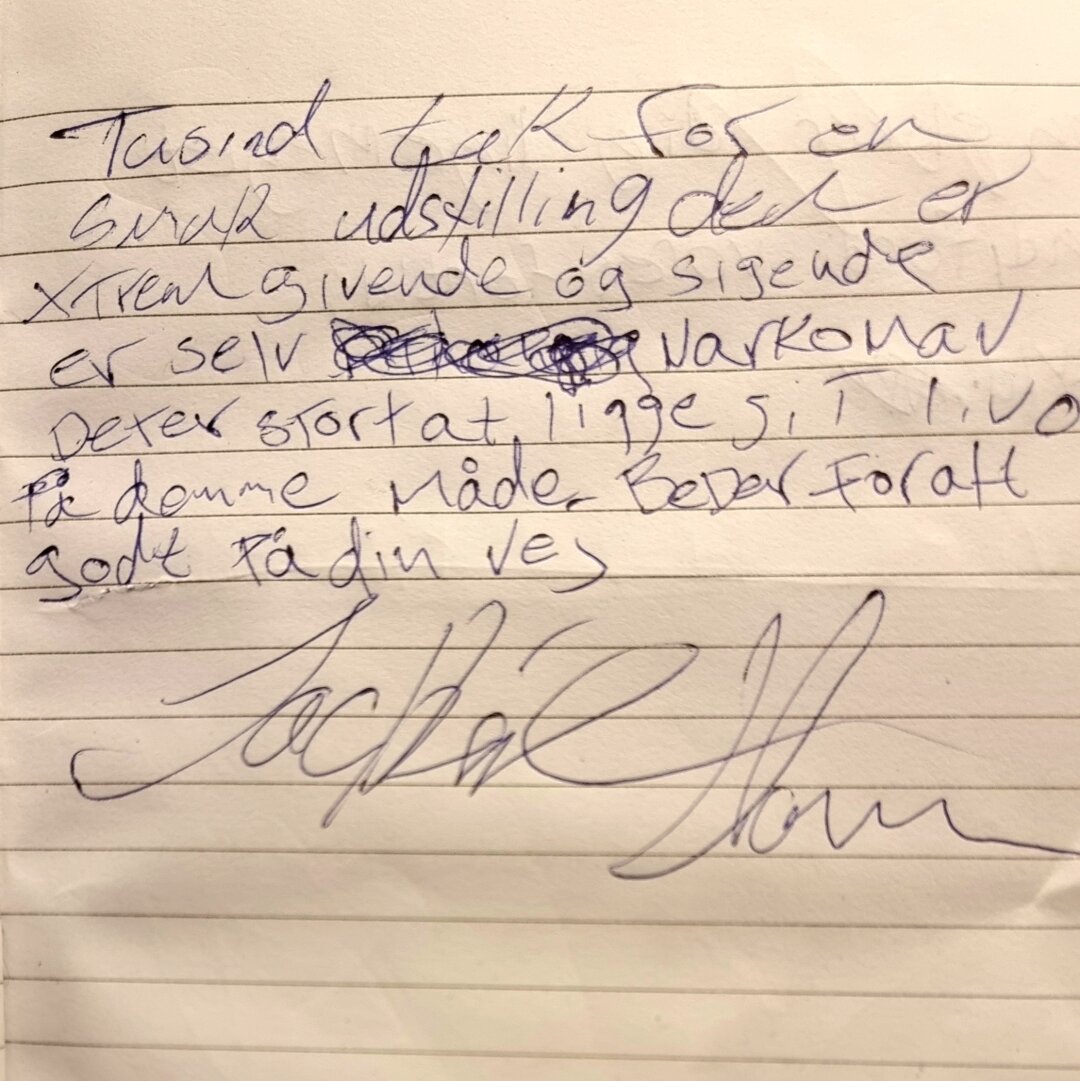 Tusind tak For en
Smuk udstilling den er
XTrem givende og sigende
er selv Narkoman
Deter stort at ligge siT liv
På denne måde. BeDer For alt
godt På din vej